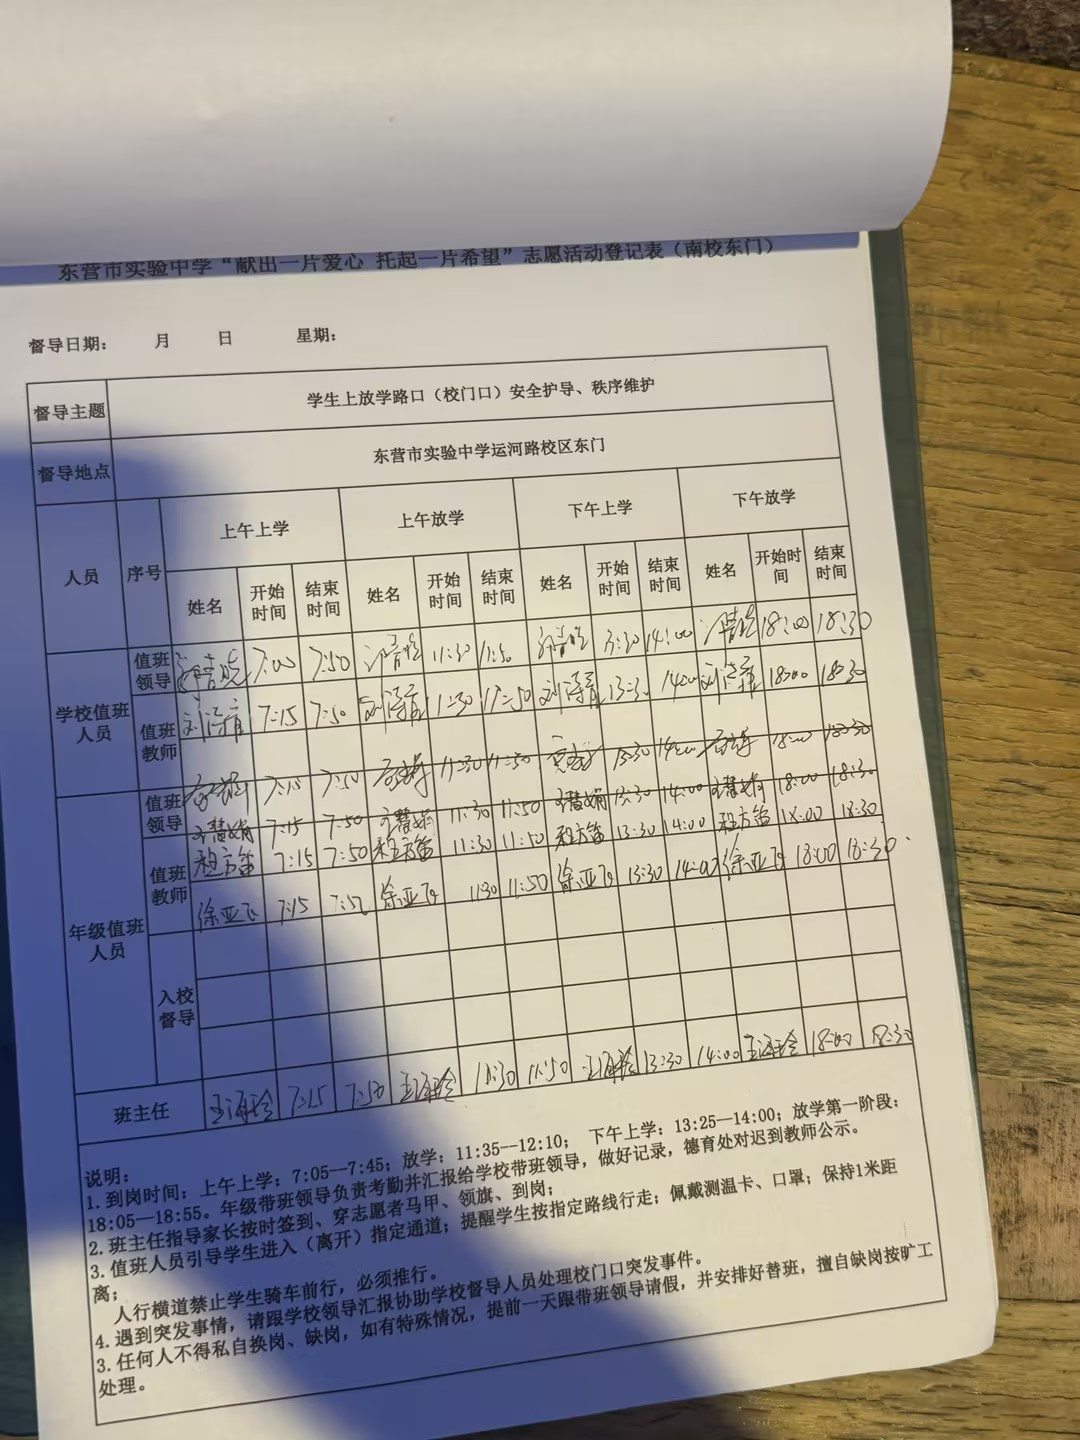 东营市实验中学“献出一片爱心 托起一片希望”志愿活动登记表（南校东门）
督导日期： 月 日 星期：
督导主题 学生上放学路口（校门口）安全护导、秩序维护
督导地点 东营市实验中学运河路校区东门
人员 序号 上午上学 上午放学 下午上学 下午放学
姓名 开始时间 结束时间 姓名 开始时间 结束时间 姓名 开始时间 结束时间 姓名 开始时间 结束时间
学校值班人员 值班领导 7:00 7:50 11:30 11:50 13:30 14:00 18:00 18:30
值班教师 7:15 7:50 11:30 11:50 13:30 14:00 18:00 18:30
年级值班人员 值班领导 7:15 7:50 11:30 11:50 13:30 14:00 18:00 18:30
7:15 7:50 11:30 11:50 13:30 14:00 18:00 18:30
值班教师 7:15 7:50 11:30 11:50 13:30 14:00 18:00 18:30
徐亚飞 7:15 7:50 徐亚飞 11:30 11:50 徐亚飞 13:30 14:00 徐亚飞 18:00 18:30
入校督导
班主任 王海玲 7:15 7:50 王海玲 11:30 11:50 王海玲 13:30 14:00 王海玲 18:00 18:30
说明：
1.到岗时间：上午上学：7:05--7:45；放学：11:35--12:10； 下午上学：13:25—14:00；放学第一阶段：
18:05—18:55。年级带班领导负责考勤并汇报给学校带班领导，做好记录，德育处对迟到教师公示。
2.班主任指导家长按时签到、穿志愿者马甲、领旗、到岗；
3.值班人员引导学生进入（离开）指定通道；提醒学生按指定路线行走；佩戴测温卡、口罩；保持1米距
离；
人行横道禁止学生骑车前行，必须推行。
4.遇到突发事情，请跟学校领导汇报协助学校督导人员处理校门口突发事件。
3.任何人不得私自换岗、缺岗，如有特殊情况，提前一天跟带班领导请假，并安排好替班，擅自缺岗按旷工
处理。